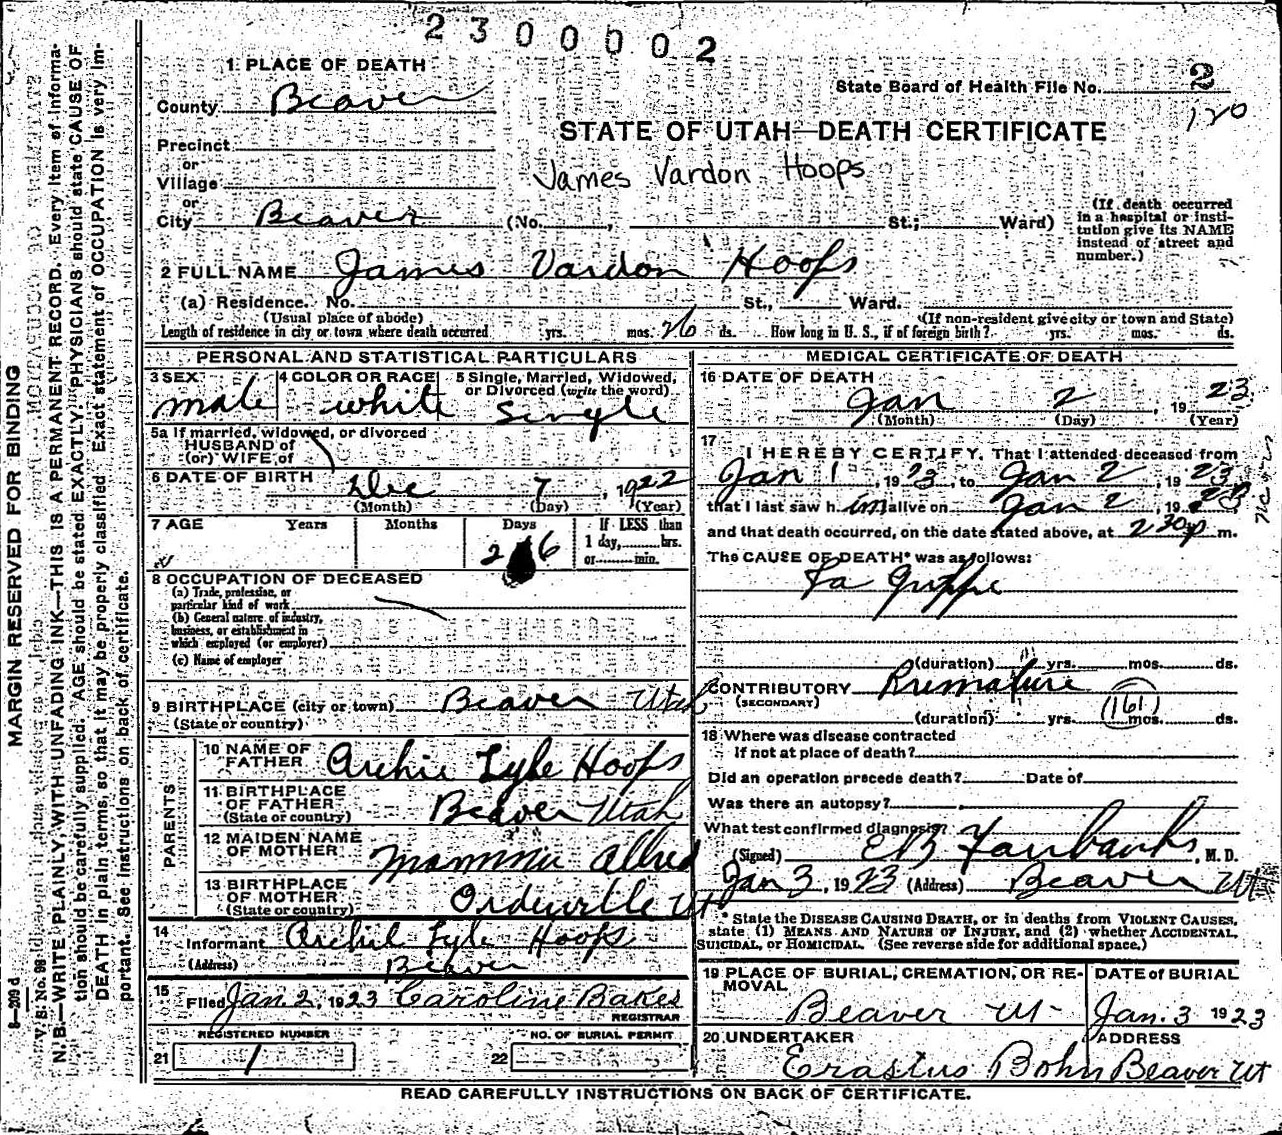 2300002
1 PLACE OF DEATH
County Beaver
State Board of Health File No. 2
120
STATE OF UTAH—DEATH CERTIFICATE
Precinct
or
Village
James Vardon Hoops
or
City Beaver (No. , St.; Ward)
(If death occurred in a hospital or institution give its NAME instead of street and number.)
2 FULL NAME James Vardon Hoops
(a) Residence. No. St., Ward.
(Usual place of abode) (If non-resident give city or town and State)
Length of residence in city or town where death occurred yrs. mos. 26 ds. How long in U. S., if of foreign birth? yrs. mos. ds.
PERSONAL AND STATISTICAL PARTICULARS
3 SEX 4 COLOR OR RACE 5 Single, Married, Widowed, or Divorced (write the word)
male white single
5a If married, widowed, or divorced
HUSBAND of
(or) WIFE of
6 DATE OF BIRTH Dec 7, 1922
(Month) (Day) (Year)
7 AGE Years Months Days If LESS than
1 day, hrs.
or min.
26
8 OCCUPATION OF DECEASED
(a) Trade, profession, or
particular kind of work
(b) General nature of industry,
business, or establishment in
which employed (or employer)
(c) Name of employer
9 BIRTHPLACE (city or town) Beaver Utah
(State or country)
PARENTS
10 NAME OF FATHER Archie Lyle Hoops
11 BIRTHPLACE OF FATHER Beaver Utah
(State or country)
12 MAIDEN NAME OF MOTHER Mammie Allred
13 BIRTHPLACE OF MOTHER Orderville Ut
(State or country)
14 Informant Archie Lyle Hoops
(Address) Beaver
15 Filed Jan. 2, 1923 Caroline Bakes
REGISTRAR
REGISTERED NUMBER NO. OF BURIAL PERMIT
21 1 22
MEDICAL CERTIFICATE OF DEATH
16 DATE OF DEATH
Jan 2, 1923
(Month) (Day) (Year)
17 I HEREBY CERTIFY, That I attended deceased from
Jan 1, 1923, to Jan 2, 1923
that I last saw him alive on Jan 2, 1923
and that death occurred, on the date stated above, at 2 30 p m.
The CAUSE OF DEATH* was as follows:
La Grippe
(duration) yrs. mos. ds.
CONTRIBUTORY Premature
(SECONDARY)
(161)
(duration) yrs. mos. ds.
18 Where was disease contracted
If not at place of death?
Did an operation precede death? Date of
Was there an autopsy?
What test confirmed diagnosis?
(Signed) E B Fairbanks, M. D.
Jan 3, 1923 (Address) Beaver Ut
* State the DISEASE CAUSING DEATH, or in deaths from VIOLENT CAUSES,
state (1) MEANS AND NATURE OF INJURY, and (2) whether ACCIDENTAL,
SUICIDAL, or HOMICIDAL. (See reverse side for additional space.)
19 PLACE OF BURIAL, CREMATION, OR REMOVAL DATE OF BURIAL
Beaver Ut Jan. 3 1923
20 UNDERTAKER ADDRESS
Erastus Bohn Beaver Ut
READ CAREFULLY INSTRUCTIONS ON BACK OF CERTIFICATE.
MARGIN RESERVED FOR BINDING
V. S. No. 99
N. B.—WRITE PLAINLY, WITH UNFADING INK—THIS IS A PERMANENT RECORD. Every item of information
should be carefully supplied. AGE should be stated EXACTLY. PHYSICIANS should state CAUSE OF
DEATH in plain terms, so that it may be properly classified. Exact statement of OCCUPATION is very important.
See instructions on back of certificate.